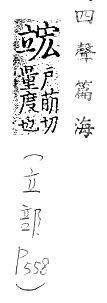 四聲篇海
竤
戶萌切
量度也
(立部P558)